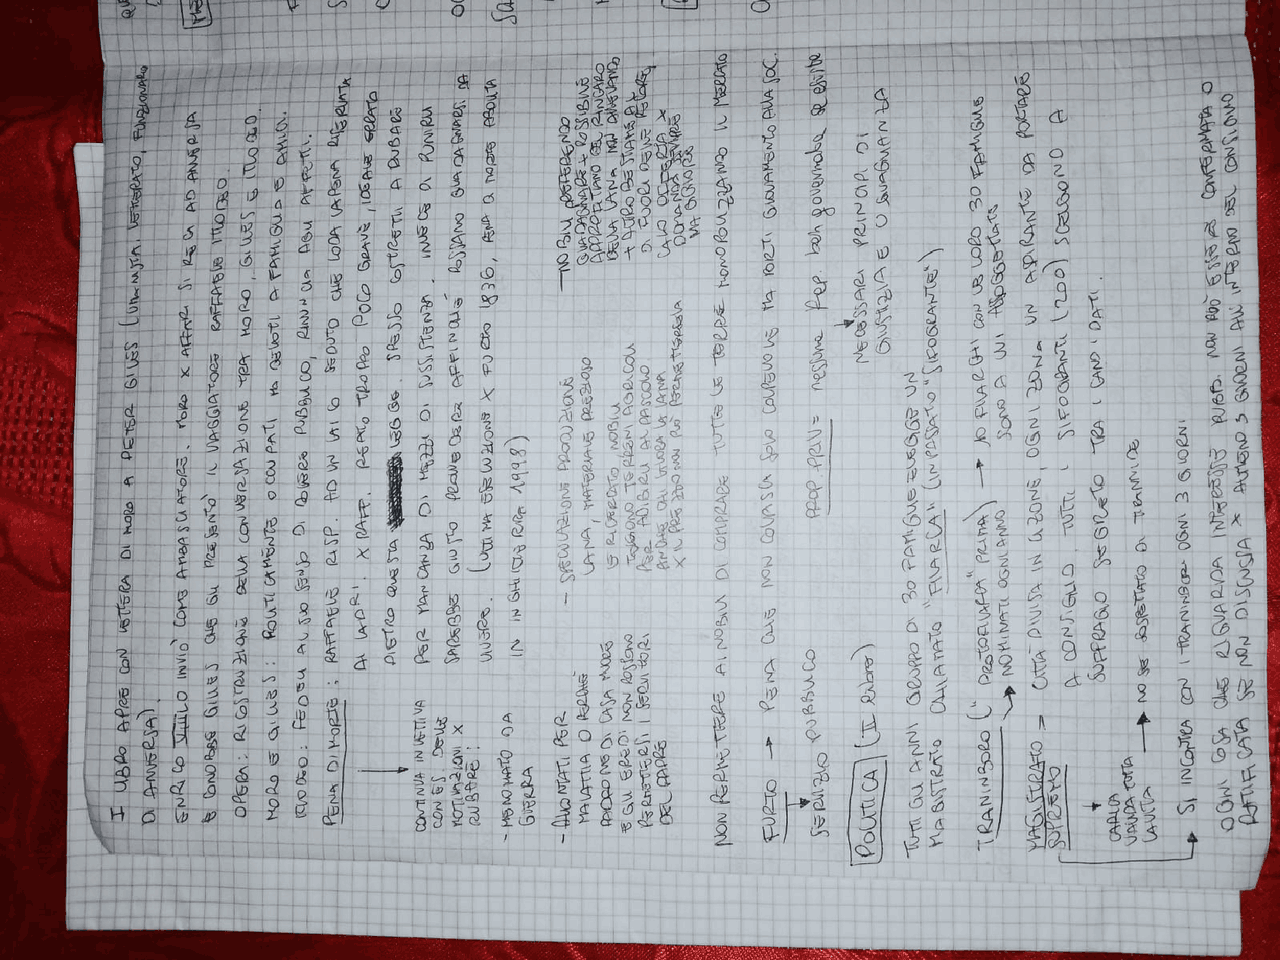 I LIBRO APRE CON LETTERA DI MORO A PETER GILLES (UMANISTA, LETTERATO, FUNZIONARIO
DI ANVERSA).
ENRICO VIII LO INVIÒ COME AMBASCIATORE. MORO X AFFARI SI RECA AD ANVERSA
E CONOBBE GILLES CHE GLI PRESENTÒ IL VIAGGIATORE RAFFAELE ITLODEO.
OPERA: RICOSTRUZIONE DELLA CONVERSAZIONE TRA MORO, GILLES E ITLODEO.
MORO E GILLES: POLITICAMENTE OCCUPATI MA DEVOTI A FAMIGLIA E AMICI.
ITLODEO: FEDELE AL SUO SENSO DI DOVERE PUBBLICO, RINUNCIA AGLI AFFETTI.
PENA DI MORTE: RAFFAELE RISP. AD UN LAICO SEDUTO CHE LODA LA PENA RISERVATA
AI LADRI. X RAFF. REATO TROPPO POCO GRAVE, IDEALE ERRATO
DIETRO QUESTA LEGGE. SPESSO COSTRETTI A RUBARE
PER MANCANZA DI MEZZI DI SUSSISTENZA. INVECE DI PUNIRLI
SAREBBE GIUSTO PROVVEDERE AFFINCHÈ POSSANO GUADAGNARSI DA
VIVERE. (ULTIMA ESECUZIONE X FURTO 1836, PENA DI MORTE ABOLITA
IN INGHILTERRA 1998)
CONTINUA INVETTIVA
CON ES DELLE
MOTIVAZIONI X
RUBARE:
- MENOMATO DA
GUERRA
- ALLONTANATI PER
MALATTIA O PERCHÈ
PADRONE DI CASA MUORE
E GLI EREDI NON POSSONO
PERMETTERSI I SERVITORI
DEL PADRE
- SPECULAZIONE PRODUZIONE
LANA, MATERIALE PREZIOSO
E RICERCATO. NOBILI
TOLGONO TERRENI AGRICOLI
PER ADIBIRLI AL PASCOLO
ANCHE CHI LAVORA LA LANA
X IL PREZZO NON PUÒ PERMETTERSELA
- NOBILI PREFERENDO
GUADAGNARE + POSSIBILE
APPROFITTANO DEL RINCARO
DELLA LANA MA ALLEVANDO
DI FUORI DELLE PECORE,
NON PERMETTERE AI NOBILI DI COMPRARE TUTTE LE TERRE MONOPOLIZZANDO IL MERCATO
FURTO → PENA CHE NON COLPISCA SOLO COLPEVOLE MA PORTI GIOVAMENTO ALLA SOC.
SERVIZIO PUBBLICO
PROP. PRIV. = nessuna Rep. ben governabile se esiste
NECESSARI PRINCIPI DI
GIUSTIZIA E UGUAGLIANZA
POLITICA (II LIBRO)
TUTTI GLI ANNI GRUPPO DI 30 FAMIGLIE ELEGGE UN
MAGISTRATO CHIAMATO "FILARCA" (IN PASSATO "SIFOGRANTE")
TRANINBORO ("PROTOFILARCA" PRIMA) → 10 FILARCHI CON LE LORO 30 FAMIGLIE
SONO A LUI ASSOGGETTATE
NOMINATI OGNI ANNO
MAGISTRATO SUPREMO = CITTÀ DIVISA IN 4 ZONE, OGNI ZONA UN ASPIRANTE DA PORTARE
A CONSIGLIO TUTTI I SIFOGRANTI (200) SCELGONO A
SUFFRAGIO SEGRETO TRA I CANDIDATI.
CARICA
VALIDA TUTTA
LA VITA → NO SE SOSPETTATO DI TIRANNIDE
→ SI INCONTRA CON I TRANINBORI OGNI 3 GIORNI
OGNI COSA CHE RIGUARDA INTERESSE PUBB. NON PUÒ ESSERE CONFERMATA O
RATIFICATA SE NON DISCUSSA X ALMENO 3 GIORNI ALL'INTERNO DEL CONSIGLIO